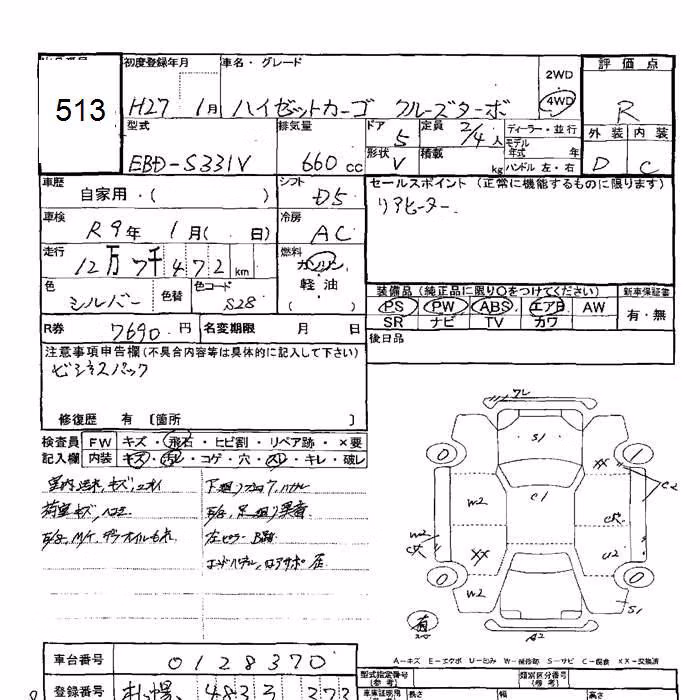 513
初度登録年月 車名・グレード 評価点
H27 1月 ハイゼットカーゴ クルーズターボ 2WD 4WD R
型式 排気量 ドア 5 定員 2/4人 ディーラー・並行 外装 内装
EBD-S331V 660cc 形状 V 積載 kg モデル年式 年 ハンドル 左・右 D C
車歴 自家用・( ) シフト D5 セールスポイント(正常に機能するものに限ります)
車検 R9年 1月( 日) 冷房 AC リアヒーター
走行 12万7千472km 燃料 ガソリン 軽油 ( )
色 シルバー 色替 色コード S28 装備品(純正品に限り○をつけてください) 新車保証書
PS PW ABS エアB AW 有・無
SR ナビ TV カワ
R券 7690円 名変期限 月 日 後日品
注意事項申告欄(不具合内容等は具体的に記入して下さい)
ビジネスパック
修復歴 有 〔箇所 〕
検査員 FW キズ・飛石・ヒビ割・リペア跡・×要
記入欄 内装 キズ・汚レ・コゲ・穴・スレ・キレ・破レ
室内汚れ、キズ、ニオイ
荷室キズ、ヘコミ
左ピラーB
フレ
S1
0 XX 1
C2
W2 C1
W2
XX U2
0 0
W2 S1
A2
A=キズ E=エクボ U=凹み W=補修跡 S=サビ C=腐食 XX=交換済
車台番号 0128370 型式指定番号(参考) 類別区分番号(参考)
登録番号 札幌 長さ 幅 高さ